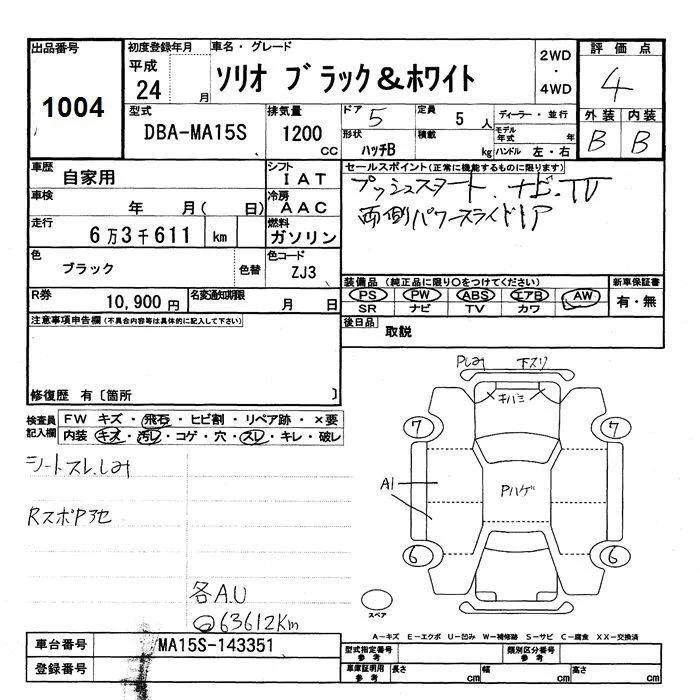 出品番号
1004
初度登録年月
平成
24 月
車名・グレード
ソリオ ブラック&ホワイト
2WD
・
4WD
評価点
4
外装 内装
B B
型式
DBA-MA15S
排気量
1200
CC
ドア 5
形状
ハッチB
定員 5 人
積載 kg
ディーラー・並行
モデル年式 年
ハンドル 左・右
車歴
自家用
シフト
IAT
車検
年 月( 日)
冷房
AAC
走行
6万3千611 km
燃料
ガソリン
色
ブラック 色替
色コード
ZJ3
R券
10,900 円
名変通知期限
月 日
セールスポイント(正常に機能するものに限ります)
プッシュスタート、ナビ、TV
両側パワースライドドア
装備品(純正品に限り○をつけてください)
PS PW ABS エアB AW
SR ナビ TV カワ
新車保証書
有・無
後日品 取説
注意事項申告欄(不具合内容等は具体的に記入して下さい)
修復歴 有〔箇所 〕
検査員記入欄
FW キズ・飛石・ヒビ割・リペア跡・×要
内装 キズ・汚レ・コゲ・穴・スレ・キレ・破レ
シートスレ.しみ
各A.U
63612Km
Pしみ 下スリ
キハミ
7 7
A1
Pハゲ
6 6
スペア
A-キズ E-エクボ U-凹み W-補修跡 S-サビ C-腐食 XX-交換済
車台番号 MA15S-143351
登録番号
型式指定番号 参考
類別区分番号 参考
車庫証明用 参考
長さ cm
幅 cm
高さ cm